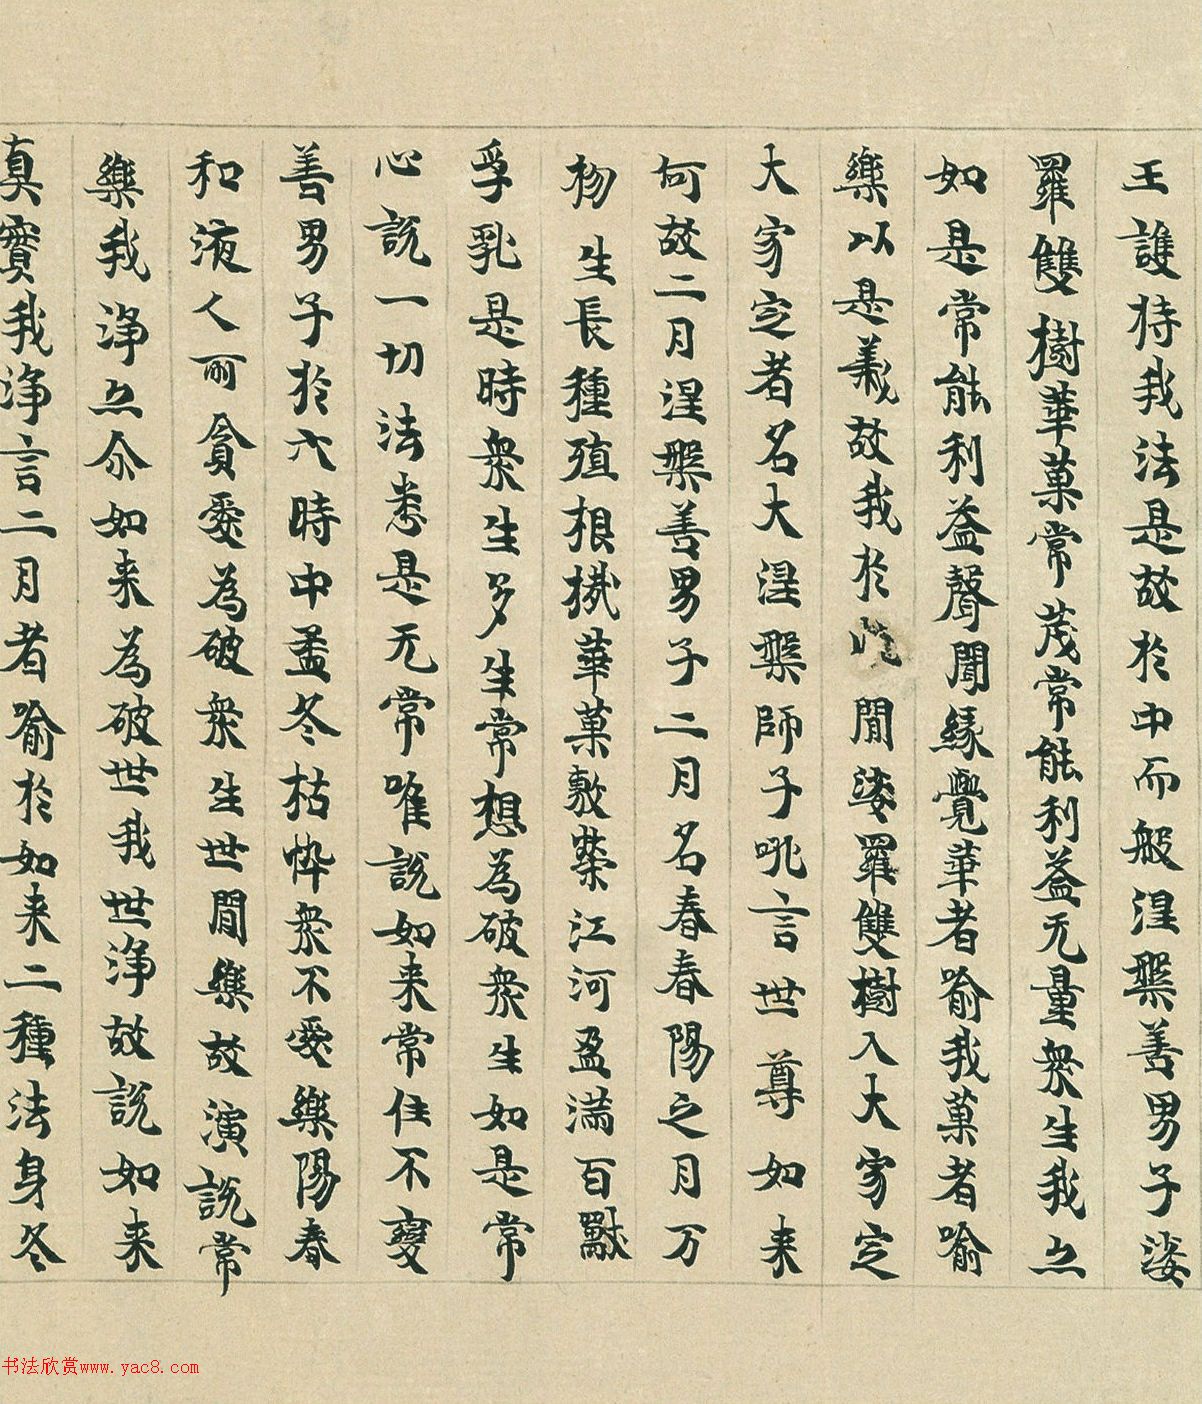 王護持我法是故於中而般涅槃善男子娑
羅雙樹華菓常茂常能利益无量衆生我亦
如是常能利益聲聞緣覺華者喻我菓者喻
樂以是義故我於 閒娑羅雙樹入大家定
大家定者名大涅槃師子吼言世尊如来
何故二月涅槃善男子二月名春春陽之月万
物生長種殖根栽華菓敷榮江河盈满百獸
孚乳是時衆生多生常想為破衆生如是常
心說一切法悉是无常唯說如来常住不變
善男子於六時中孟冬枯悴衆不愛樂陽春
和液人所貪愛為破衆生世閒樂故演説常
樂我浄亦尒如来為破世我世浄故說如来
真實我浄言二月者喻於如来二種法身冬
书法欣赏www.yac8.com